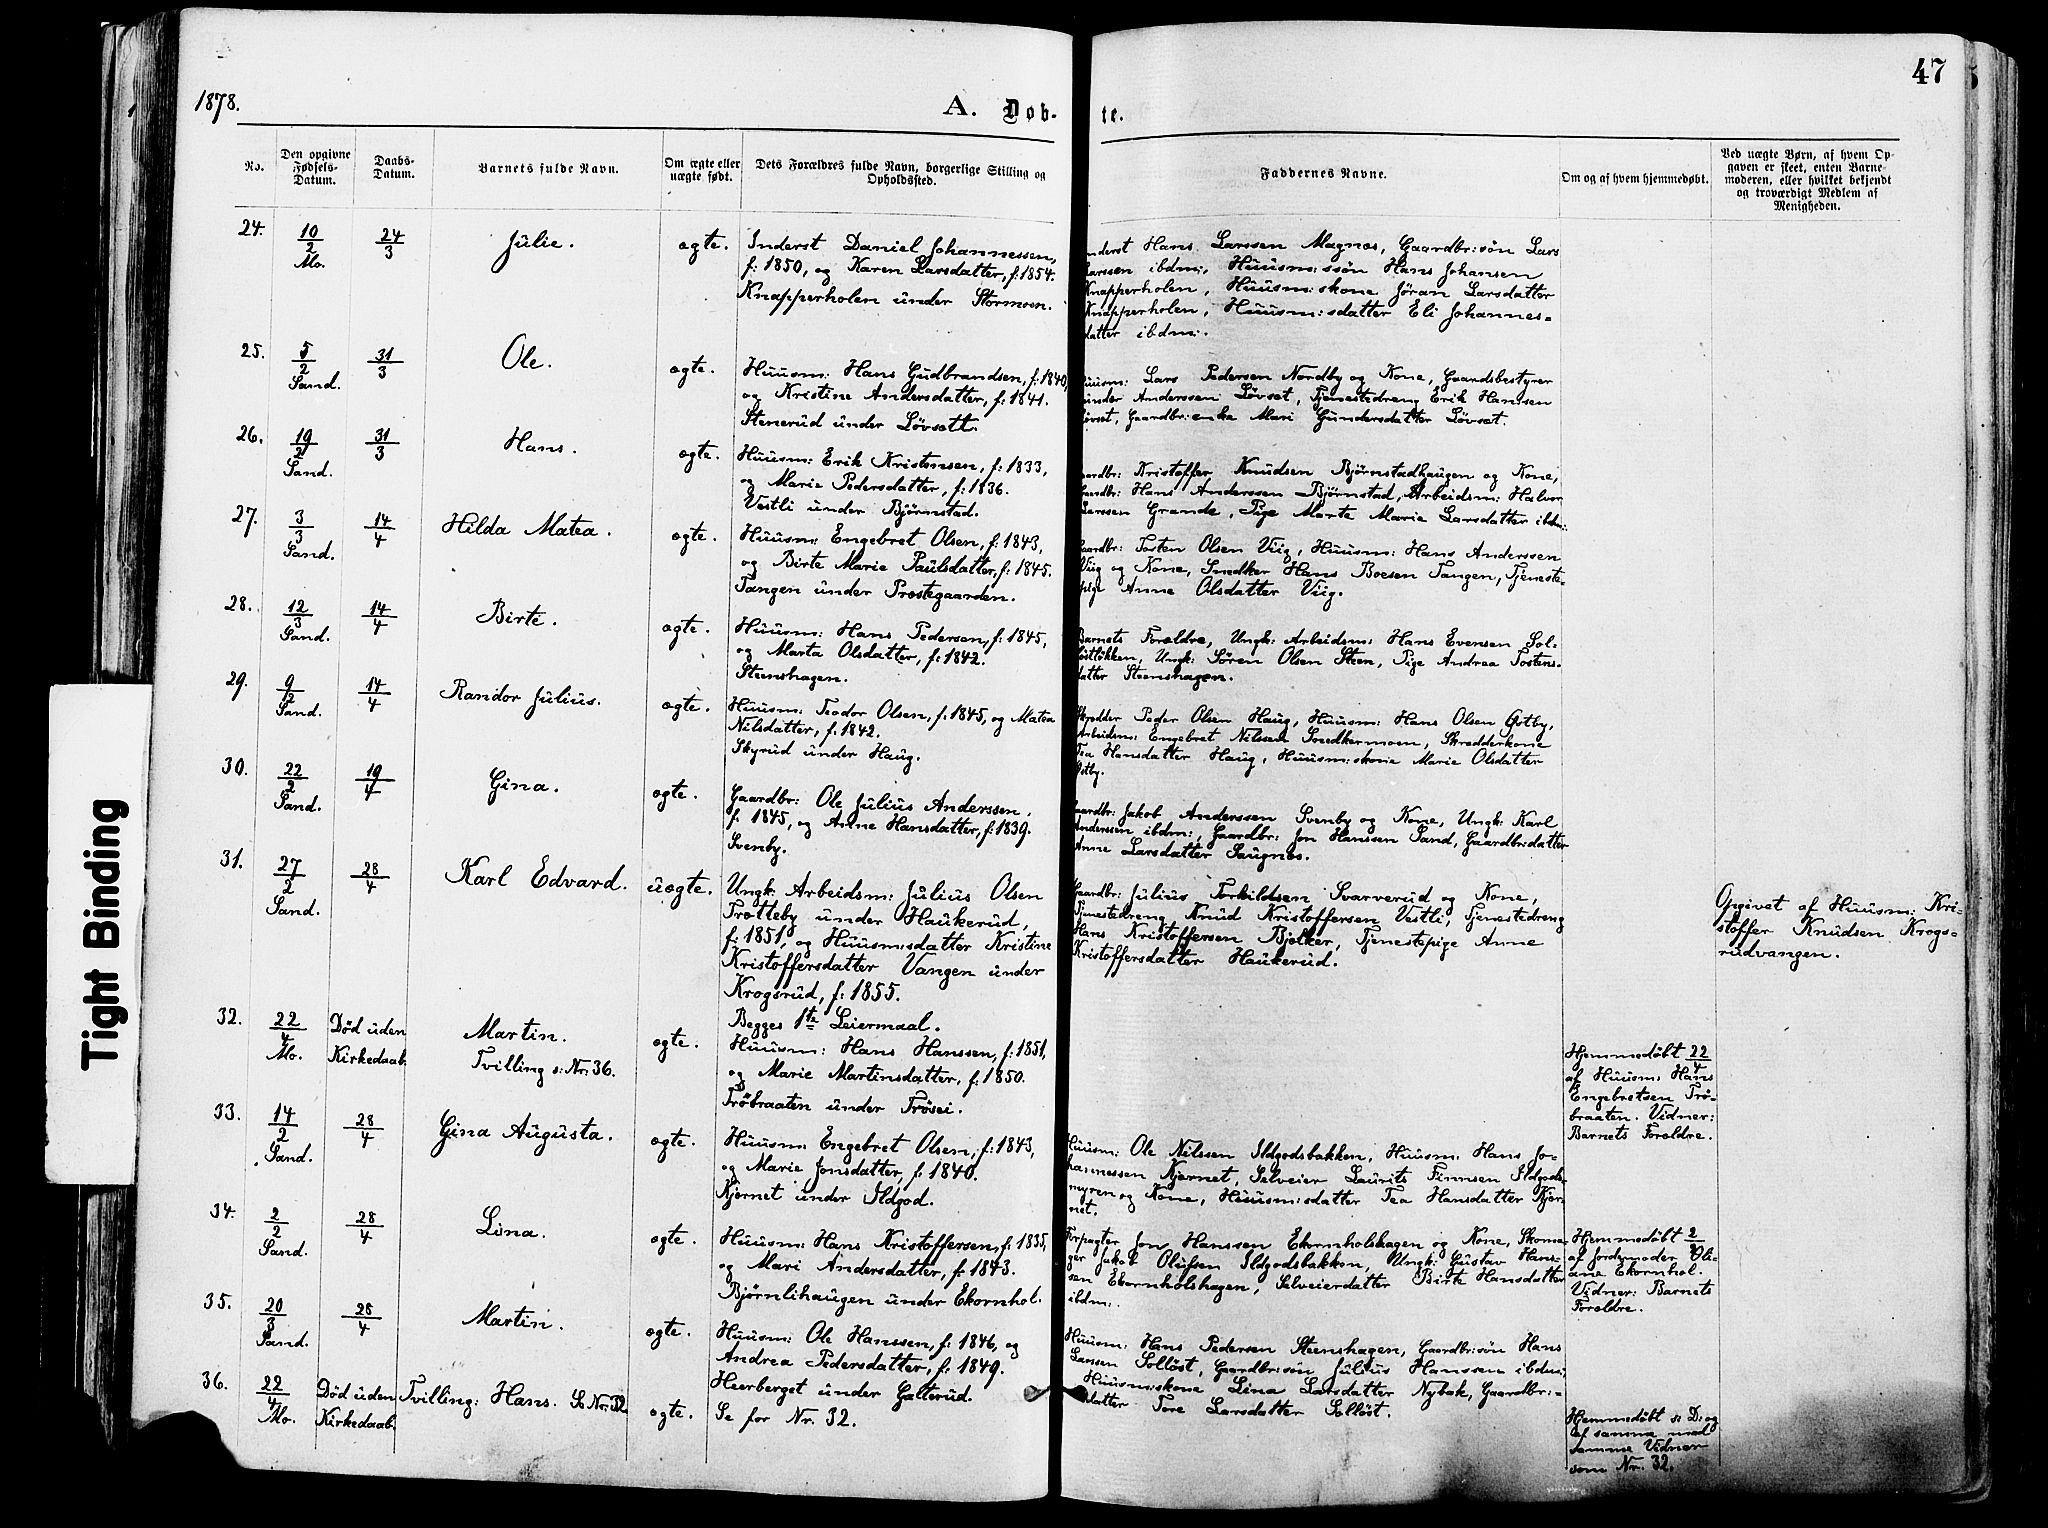 1878.
A. Døb-
te.
47
No.
Den opgivne
Fødsels-
Datum.
Daabs-
Datum.
Barnets fulde Navn.
Om ægte eller
uægte født.
Dets Forældres fulde Navn, borgerlige Stilling og
Opholdssted.
Faddernes Navne.
Om og af hvem hjemmedøbt.
Ved uægte Børn, af hvem Op-
gaven er skeet, enten Barne-
moderen, eller hvilket bekjendt
og troværdigt Medlem af
Menigheden.
24.
10/2
Mo.
24/3
Julie.
ægte.
Inderst Daniel Johannessen,
f: 1850, og Karen Larsdatter, f: 1854.
Knapperholen under Stormoen.
Inderst Hans Larssen Magnæs, Gaardbr:søn Lars
Larssen ibdm:, Huusm:ssøn Hans Johansen
Knapperholen, Huusm:skone Jøran Larsdatter
Knapperholen, Huusm:sdatter Eli Johannes=
datter ibdm:.
25.
5/2
Sand.
31/3
Ole.
ægte.
Huusm: Hans Gudbrandsen, f: 1840,
og Kristine Andersdatter, f: 1841.
Stenerud under Løvsett.
Huusm: Lars Pedersen Nordby og Kone, Gaardsbestyrer
Gunder Anderssen Løvset, Tjenestedreng Erik Hanssen
Løvset, Gaardbr:enke Mari Gundersdatter Løvset.
26.
19/2
Sand.
31/3
Hans.
ægte.
Huusm: Erik Kristensen, f: 1833,
og Marie Pedersdatter, f: 1836.
Vestli under Bjørnstad.
Gaardbr: Kristoffer Knudsen Bjørnstadhaugen og Kone,
Gaardbr: Hans Anderssen Bjørnstad, Arbeidsm: Halvor
Larssen Grande, Pige Marte Marie Larsdatter ibdm:.
27.
3/3
Sand.
14/4
Hilda Matea.
ægte.
Huusm: Engebret Olsen, f: 1843,
og Birte Marie Paulsdatter, f: 1845.
Tangen under Præstegaarden.
Gaardbr: Tosten Olsen Viig, Huusm: Hans Anderssen
Viig og Kone, Snedker Hans Boesen Tangen, Tjeneste=
pige Anne Olsdatter Viig.
28.
12/3
Sand.
14/4
Birte.
ægte.
Huusm: Hans Pedersen, f: 1845,
og Marta Olsdatter, f: 1842.
Steenshagen.
Barnets Forældre, Ungk: Arbeidsm: Hans Evensen Sol-
løstløkken, Ungk: Søren Olsen Steen, Pige Andrea Tostens-
datter Steenshagen.
29.
9/2
Sand.
14/4
Randor Julius.
ægte.
Huusm: Teodor Olsen, f: 1845, og Matea
Nilsdatter, f: 1842.
Skyrud under Haug.
Skrædder Peder Olsen Haug, Huusm: Hans Olsen Østby,
Arbeidsm: Engebret Nilssen Snedkermoen, Skrædderkone
Tea Hansdatter Haug, Huusm:skone Marie Olsdatter
Østby.
30.
22/2
Sand.
19/4
Gina.
ægte.
Gaardbr: Ole Julius Anderssen,
f: 1845, og Anne Hansdatter, f: 1839.
Svenby.
Gaardbr: Jakob Anderssen Svenby og Kone, Ungk: Karl
Anderssen ibdm:, Gaardbr: Jon Hanssen Sand, Gaardbr:datter
Anne Larsdatter Saugnæs.
31.
27/2
Sand.
28/4
Karl Edvard.
uægte.
Ungk: Arbeidsm: Julius Olsen
Trætteby under Haukerud,
f: 1851, og Huusm:sdatter Kristine
Kristoffersdatter Vangen under
Krogsrud, f: 1855.
Begges 1te Leiermaal.
Gaardbr: Julius Torkildsen Svarverud og Kone,
Tjenestedreng Knud Kristoffersen Vestli, Tjenestedreng
Hans Kristoffersen Bjølker, Tjenestepige Anne
Kristoffersdatter Haukerud.
Opgivet af Huusm: Kri-
stoffer Knudsen Krogs-
rudvangen.
32.
22/4
Mo.
Død uden
Kirkedaab.
Martin.
Tvilling s: Nr: 36.
ægte.
Huusm: Hans Hanssen, f: 1851,
og Marie Martinsdatter, f: 1850.
Trøbraaten under Trøsei.
Hjemmedøbt 22/4
af Huusm: Hans
Engebretsen Trø-
braaten. Vidner:
Barnets Forældre.
33.
14/2
Sand.
28/4
Gina Augusta.
ægte.
Huusm: Engebret Olsen, f: 1843,
og Marie Jonsdatter, f: 1840.
Kjernet under Ildgod.
Huusm: Ole Nilssen Ildgodsbakken, Huusm: Hans Jo-
hannessen Kjernet, Selveier Laurits Finnsen Ildgods-
myren og Kone, Huusm:sdatter Tea Hansdatter Kjer-
net.
34.
2/2
Sand.
28/4
Lina.
ægte.
Huusm: Hans Kristoffersen, f: 1835,
og Mari Andersdatter, f: 1843.
Bjørnlihaugen under Ekornhol.
Forpagter Jon Hanssen Ekornholshagen og Kone, Skoma-
ger Jakob Olufsen Ildgodsbakken, Ungk: Gustav Hans-
sen Ekornholshagen, Selveierdatter Birte Hansdatter
ibdm:.
Hjemmedøbt 2/2
af Jordemoder Oli-
ane Ekornhol.
Vidner: Barnets
Forældre.
35.
20/3
Sand.
28/4
Martin.
ægte.
Huusm: Ole Hanssen, f: 1846, og
Andrea Pedersdatter, f: 1849.
Heerberget under Galterud.
Huusm: Hans Pedersen Steenshagen, Gaardbr:søn Hans
Larsen Solløst, Gaardbr:søn Julius Hanssen ibdm:
Huusm:skone Lina Larsdatter Nybak, Gaardbr:-
datter Tore Larsdatter Solløst.
36.
22/4
Mo.
Død uden
Kirkedaab.
Tvilling: Hans. Se Nr: 32
ægte.
Se for Nr. 32.
Hjemmedøbt s: D: og
af samme med
samme Vidner
som Nr. 32.
Tight Binding